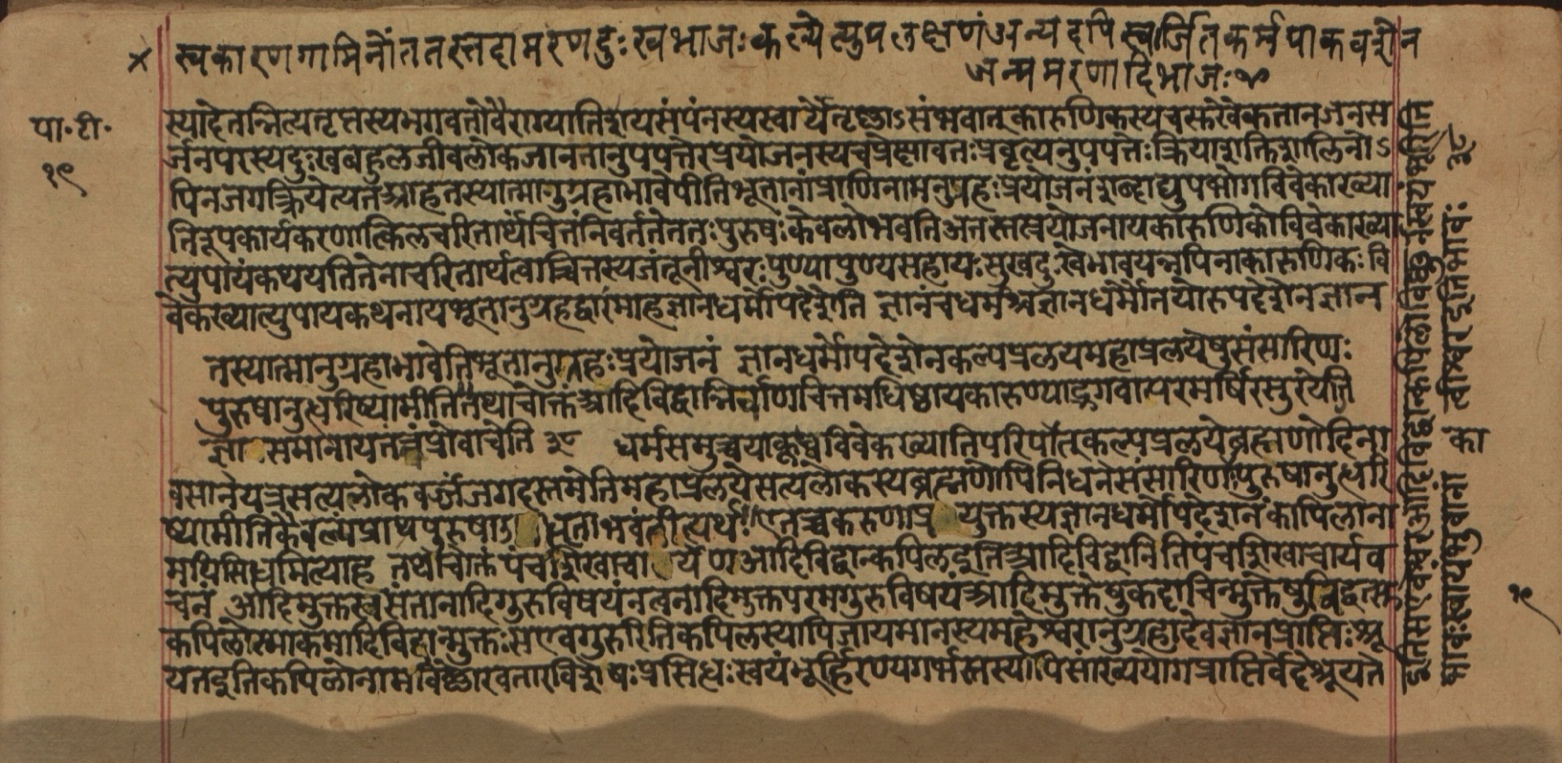 स्वकारणगामिनां ततस्तदामरणदुःखभाजः कल्पेत्युपलक्षणं अन्यदपि स्वार्जितकर्मपाकवशेन
जन्ममरणादिभाजः
पा॰टी॰
१९
स्यादेतन्नित्यतृप्तस्यभगवतोवैराग्यातिशयसंपंनस्यस्वार्थेतृष्णाऽसंभवात्कारुणिकस्यचसुखैकतानजनस
र्जनपरस्यदुःखबहुलजीवलोकजाननानुपपत्तेरप्रयोजनस्यचप्रेक्षावतःप्रवृत्यनुपपत्तेःक्रियाशक्तिशालिनोऽ
पिनजगत्क्रियेत्यतआहतस्यात्मानुग्रहाभावेपीतिभूतानांप्राणिनामनुग्रहःप्रयोजनंशब्दाद्युपभोगविवेकाख्या
तिरूपकार्यकरणात्किलचरितार्थंचित्तंनिवर्ततेततःपुरुषःकेवलीभवतिअतस्तत्प्रयोजनायकारुणिकोविवेकाख्या
त्युपायंकथयतितेनाचरितार्थत्वाच्चित्तस्यजंतूनीश्वरःपुण्यापुण्यसहायःसुखदुःखेभावयन्नपिनाकारुणिकःवि
वेकख्यात्युपायकथनायभूतानुग्रहद्वारंमाहज्ञानधर्मोपदेशेति ज्ञानंचधर्मश्चज्ञानधर्मौतयोरुपदेशेनज्ञान
तस्यात्मानुग्रहाभावेतिभूतानुग्रहःप्रयोजनं ज्ञानधर्मोपदेशेनकल्पप्रलयमहाप्रलयेषुसंसारिणः
पुरुषानुद्धरिष्यामीतितथाचोक्तंआदिविद्वान्निर्माणचित्तमधिष्ठायकारुण्याद्भगवात्परमर्षिरसुरयेजि
ज्ञासमानायतंत्रंप्रोवाचेति धर्मसमुच्चयाकूश्चविवेकख्यातिपरिपातकल्पप्रलयेब्रह्मणोहिना
वसानेयत्रसत्यलोकवर्ज्जंजगदस्तमेतिमहाप्रलयेसत्यलोकस्यब्रह्मणोपिनिधनेसंसारिणःपुरुषानुध्धरि
ष्यामीतिकैवल्यंप्राप्यपुरुषा धृताभवंतीत्यर्थःएतच्चकरुणाप्र युक्तस्यज्ञानधर्मोपदेशनंकापिलाना
मपिसिधमित्याह तथाचोक्तंपंचशिखाचा र्येणआदिविद्वान्कपिलइतिआदिविद्वानितिपंचशिखाचार्यव
चनं आदिमुक्तस्वसंतानादिगुरुविषयंनत्वनादिमुक्तपरमगुरुविषयंआदिमुक्तेषुकदाचिन्मुक्तेषुविद्वत्सु
कपिलोस्माकमादिविद्वान्मुक्तःसएवगुरुरितिकपिलस्यापिजायमानस्यमहेश्वरानुग्रहादेवज्ञानप्राप्तिःश्रू
यतइतिकपिलोनामविष्णोरवतारविशेषःप्रसिधःस्वयंभूर्हिरण्यगर्भस्तस्यापिसांख्ययोगप्राप्तिर्वेदेश्रूयते
इतिसएवेश्वरआदिविद्वान्कपिलोविष्णुःस्वयंभूरिति
भावःस्वायंभुवानां त्वीश्वरइतिभावः
का
१९